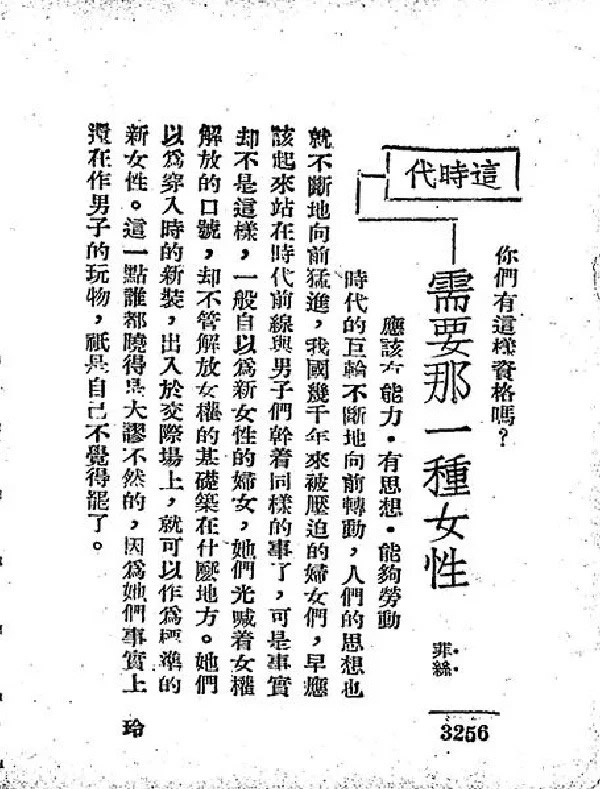 你們有這樣資格嗎？
這時代
需要那一種女性
菲絲
3256
應該有能力・有思想・能夠勞動
時代的巨輪不斷地向前轉動，人們的思想也
就不斷地向前猛進，我國幾千年來被壓迫的婦女們，早應
該起來站在時代前線與男子們幹着同樣的事了，可是事實
却不是這樣，一般自以爲新女性的婦女，她們光喊着女權
解放的口號，却不管解放女權的基礎築在什麼地方。她們
以爲穿入時的新裝，出入於交際場上，就可以作爲標準的
新女性。這一點誰都曉得是大謬不然的，因爲她們事實上
還在作男子的玩物，祇是自己不覺得罷了。
玲